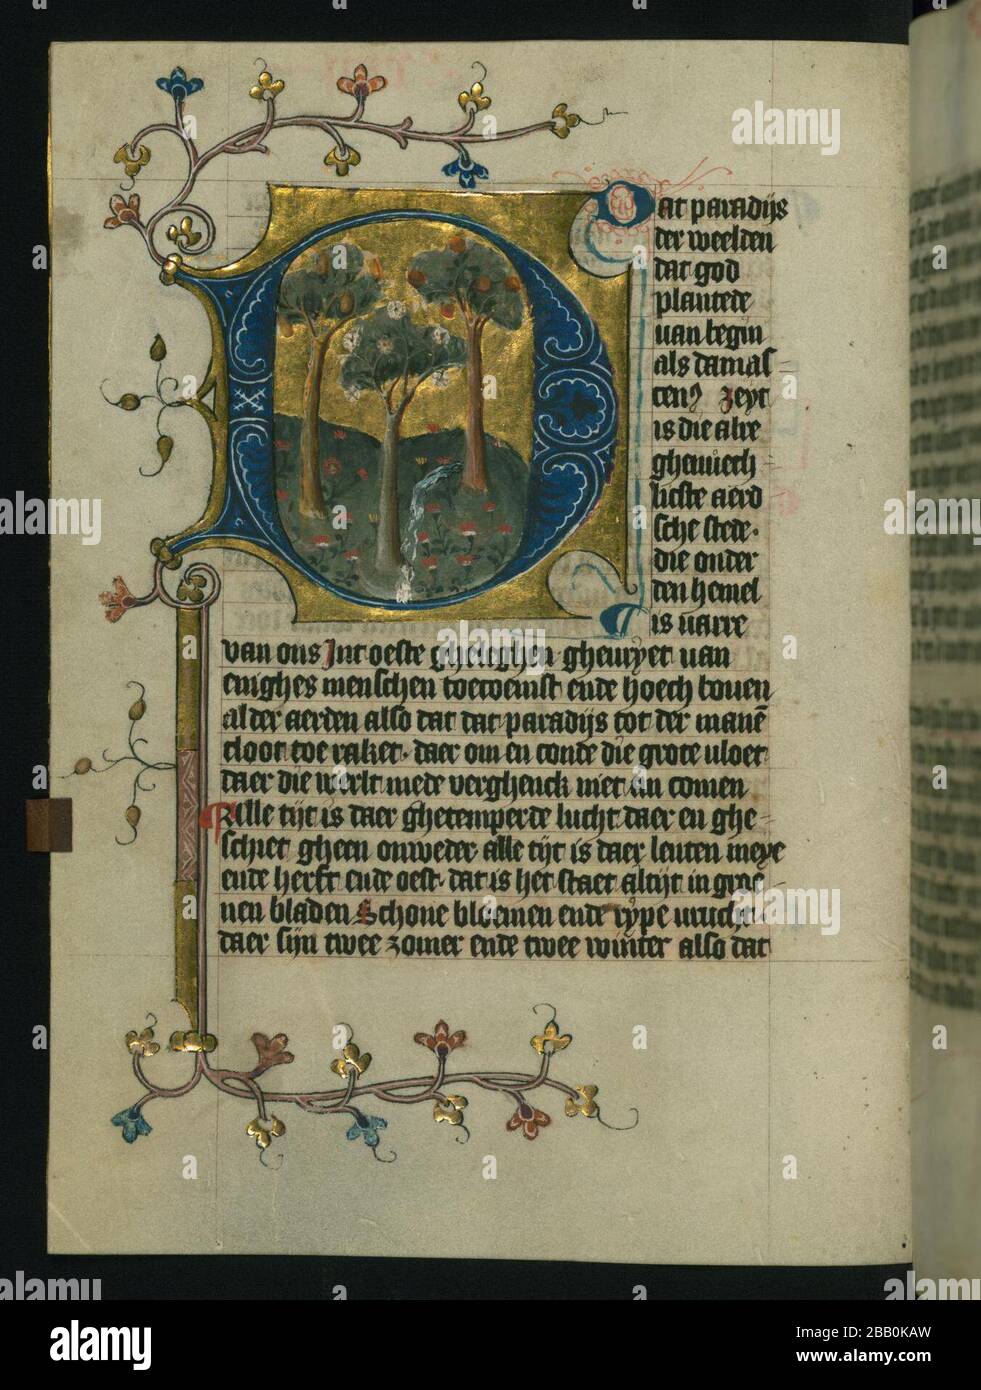 Dat paradijs
der weelden
dat god
plantede
van begin
als damas
cen9 zeyt
is die alre
ghenuech
licste aerd
sche stede.
die onder
den hemel
is varre
van ons Int oeste gheleghen ghewyet van
enighes menschen toecoemst ende hoech boven
al der aerden also dat dat paradijs tot der manē
cloot toe raket. daer om en conde die grote vloet
daer die werlt mede verghenck niet an comen
Alle tijt is daer ghetemperde lucht daer en ghe-
schiet gheen onweder. alle tijt is daer lenten meye
ende herfst ende oest. dat is het staet altijt in groe
nen bladen Schone bloemen ende rype vruchē
daer sijn twee zomer ende twee winter also dat
alamy
Image ID: 2BB0KAW
www.alamy.com